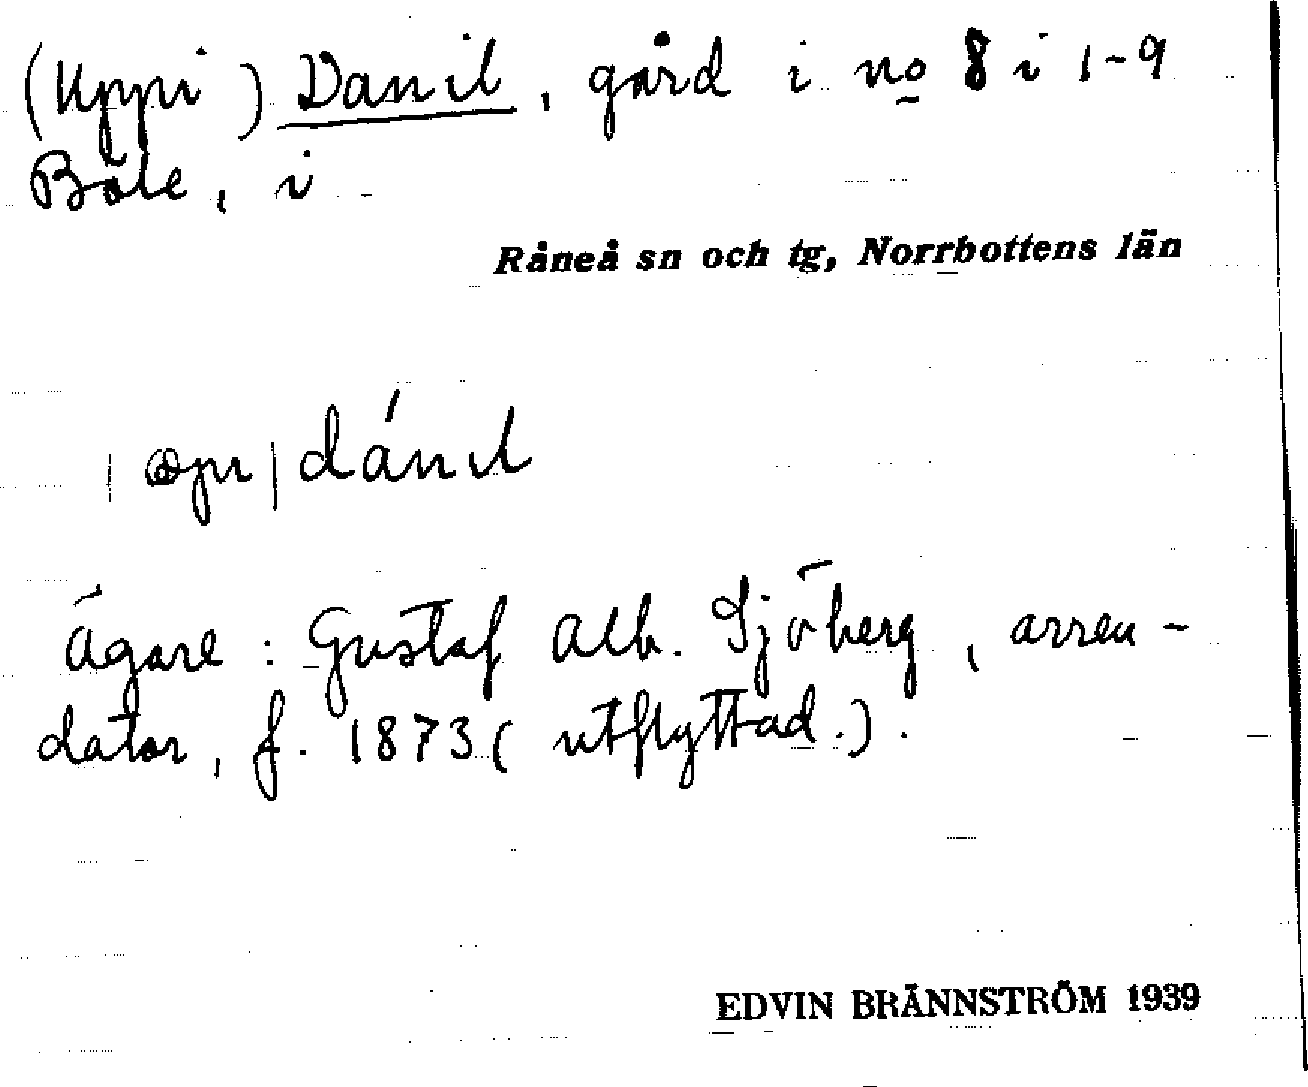 (Uppi) Danil, gård i no 8 i 1-9
Böle, i
Råneå sn och tg, Norrbottens län
dánıl
Ägare: Gustaf Alb. Sjöberg, arren-
dator, f. 1873 (utflyttad.).
EDVIN BRÄNNSTRÖM 1939